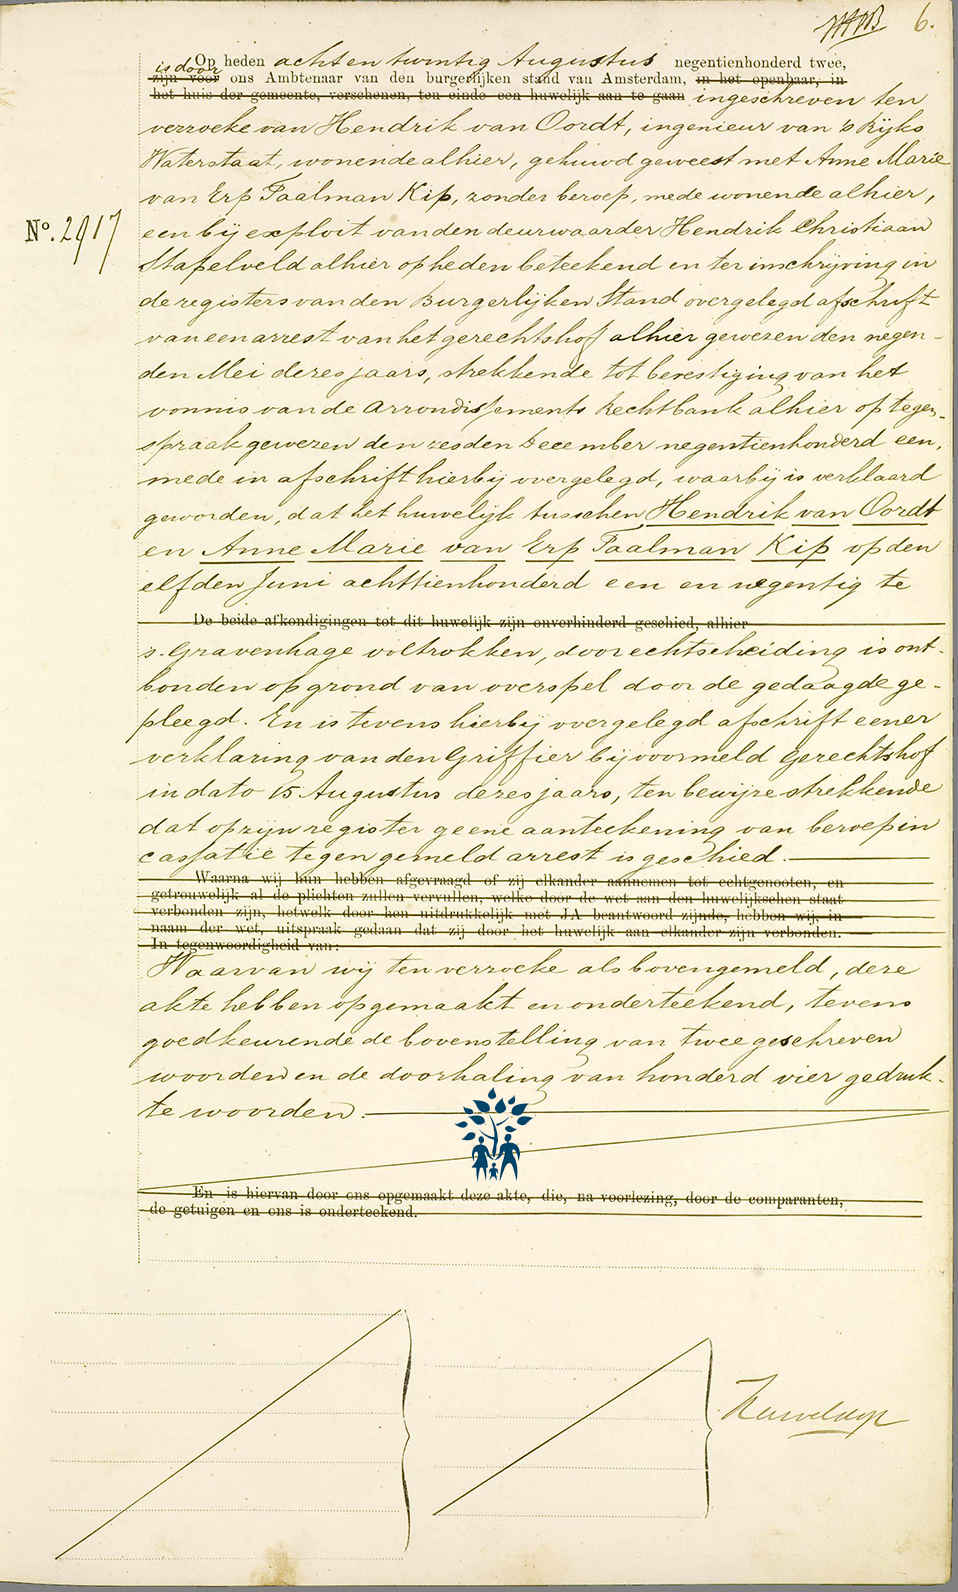 6.
Op heden acht en twintig Augustus negentienhonderd twee,
is door
zijn voor ons Ambtenaar van den burgerlijken stand van Amsterdam, in het openbaar, in
het huis der gemeente, verschenen, ten einde een huwelijk aan te gaan ingeschreven ten
verzoeke van Hendrik van Oordt, ingenieur van 's Rijks
Waterstaat, wonende alhier, gehuwd geweest met Anne Marie
van Erp Taalman Kip, zonder beroep, mede wonende alhier,
No. 2917
een bij exploit van den deurwaarder Hendrik Christiaan
Stapelveld alhier op heden beteekend en ter inschrijving in
de registers van den Burgerlijken Stand overgelegd afschrift
van een arrest van het gerechtshof alhier gewezen den negen-
den Mei dezes jaars, strekkende tot bevestiging van het
vonnis van de Arrondissements Rechtbank alhier op tegen-
spraak gewezen den zesden December negentienhonderd een,
mede in afschrift hierbij overgelegd, waarbij is verklaard
geworden, dat het huwelijk tusschen Hendrik van Oordt
en Anne Marie van Erp Taalman Kip op den
elfden Juni achttienhonderd een en negentig te
De beide afkondigingen tot dit huwelijk zijn onverhinderd geschied, alhier
's Gravenhage voltrokken, door echtscheiding is ont-
bonden op grond van overspel door de gedaagde ge-
pleegd. En is tevens hierbij overgelegd afschrift eener
verklaring van den Griffier bij voormeld Gerechtshof
in dato 15 Augustus dezes jaars, ten bewijze strekkende
dat op zijn register geene aanteekening van beroep in
cassatie tegen gemeld arrest is geschied.
Waarna wij hun hebben afgevraagd of zij elkander aannemen tot echtgenooten, en
getrouwelijk al de plichten zullen vervullen, welke door de wet aan den huwelijkschen staat
verbonden zijn, hetwelk door hen uitdrukkelijk met JA beantwoord zijnde, hebben wij, in
naam der wet, uitspraak gedaan dat zij door het huwelijk aan elkander zijn verbonden.
In tegenwoordigheid van:
Waarvan wij ten verzoeke als bovengemeld, deze
akte hebben opgemaakt en onderteekend, tevens
goedkeurende de bovenstelling van twee geschreven
woorden en de doorhaling van honderd vier gedruk-
te woorden.
En is hiervan door ons opgemaakt deze akte, die, na voorlezing, door de comparanten,
de getuigen en ons is onderteekend.